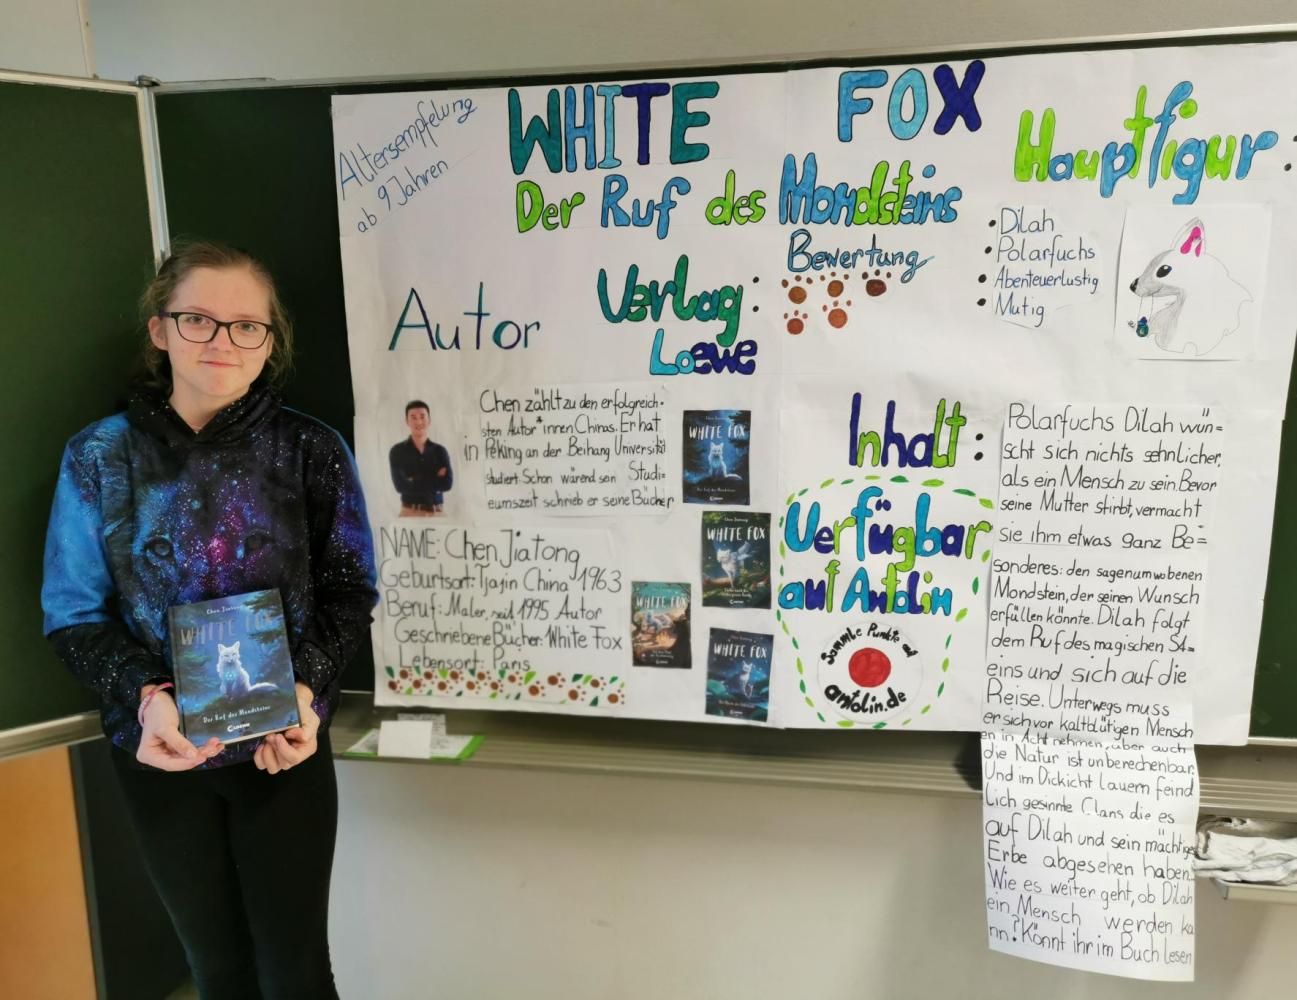 Altersempfelung
ab 9 Jahren
WHITE FOX
Der Ruf des Mondsteins
Bewertung
Verlag:
Loewe
Hauptfigur:
• Dilah
• Polarfuchs
• Abenteuerlustig
• Mutig
Autor
Chen zählt zu den erfolgreich-
sten Autor*innen Chinas. Er hat
in Peking an der Beihang Universität
studiert. Schon wärend sein Studi-
eumszeit schrieb er seine Bücher
NAME: Chen Jiatong
Geburtsort: Tjajin China 1963
Beruf: Maler, seit 1995 Autor
Geschriebene Bücher: White Fox
Lebensort: Paris
WHITE FOX
Der Ruf des Mondsteins
Chen Jiatong
WHITE FOX
WHITE FOX
WHITE FOX
Inhalt:
Verfügbar
auf Antolin
Sammle Punkte auf
antolin.de
Polarfuchs Dilah wün=
scht sich nichts sehnlicher,
als ein Mensch zu sein. Bevor
seine Mutter stirbt, vermacht
sie ihm etwas ganz Be=
sonderes: den sagenumwobenen
Mondstein, der seinen Wunsch
erfüllen könnte. Dilah folgt
dem Ruf des magischen St=
eins und sich auf die
Reise. Unterwegs muss
er sich vor kaltblütigen Mensch
en in Acht nehmen, aber auch
die Natur ist unberechenbar.
Und im Dickicht lauern feind
lich gesinnte Clans die es
auf Dilah und sein mächtiges
Erbe abgesehen haben..
Wie es weiter geht, ob Dilah
ein Mensch werden ka
nn? Könnt ihr im Buch lesen
Chen Jiatong
WHITE FOX
Der Ruf des Mondsteins
LOEWE